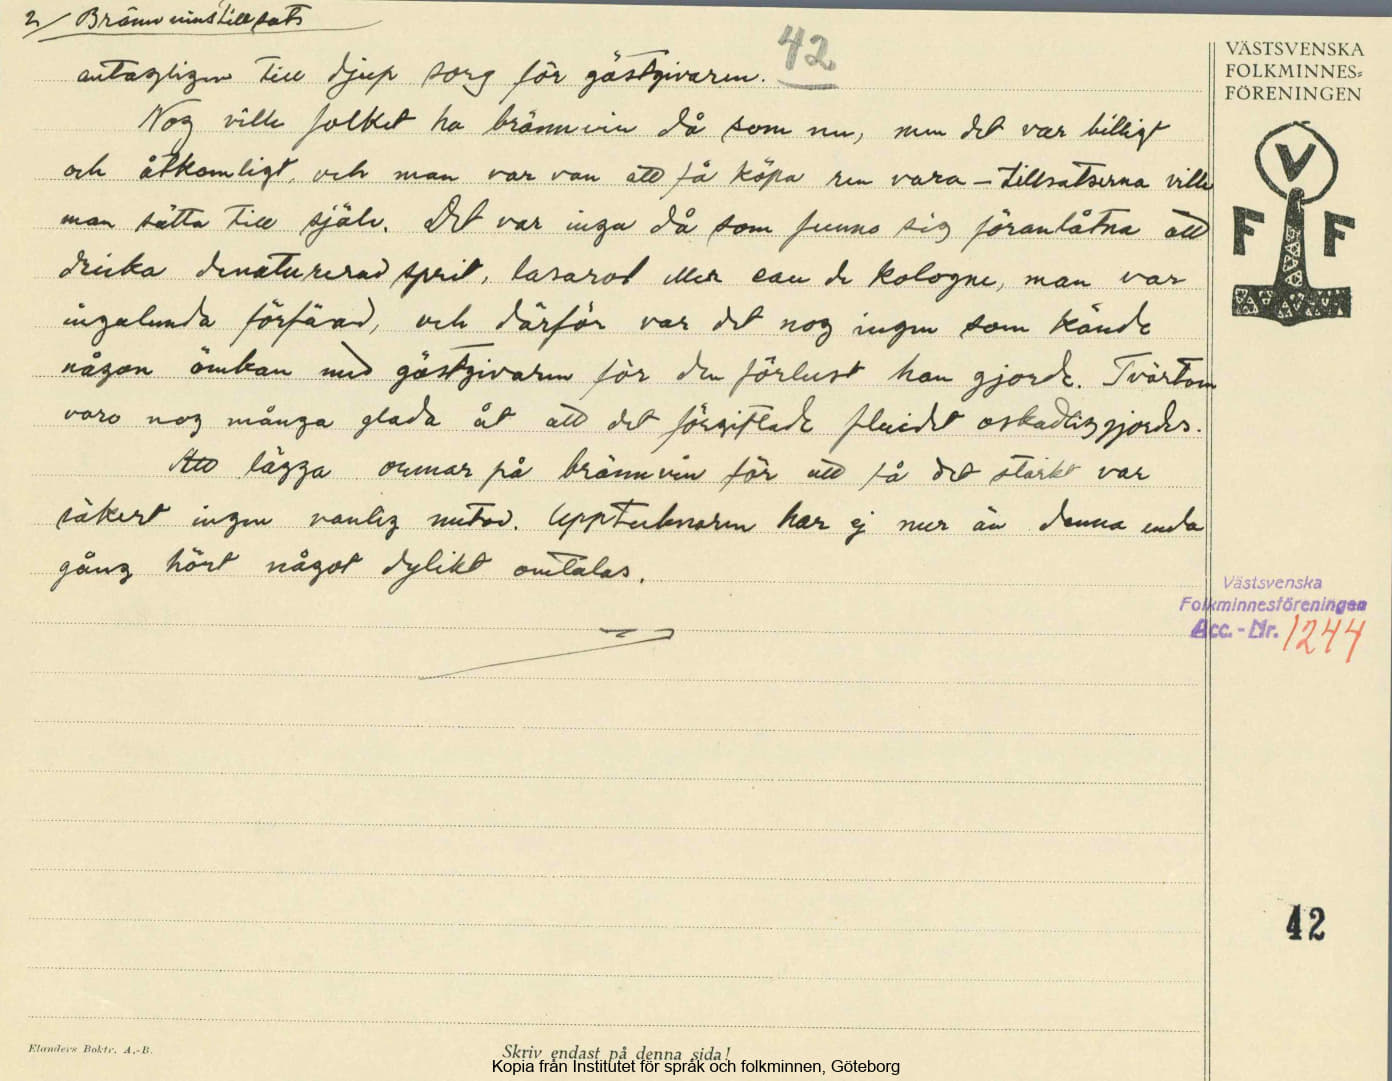 2/ Brännvinstillsats
42
antagligen till djup sorg för gästgivaren.
Nog ville folket ha brännvin då som nu, men det var billigt
och åtkomligt, och man var van att få köpa ren vara – tillsatserna ville
man sätta till själv. Det var inga då som funno sig föranlåtna att
dricka denaturerad sprit, lasarol eller eau de kologne, man var
ingalunda förfärad, och därför var det nog ingen som kände
någon ömkan med gästgivaren för den förlust han gjorde. Tvärtom
voro nog många glada åt att det förgiftade fluidet oskadliggjordes.
Att lägga ormar på brännvin för att få det starkt var
säkert ingen vanlig metod. Upptecknaren har ej mer än denna enda
gång hört något dylikt omtalas.
VÄSTSVENSKA
FOLKMINNES=
FÖRENINGEN
V
F F
Västsvenska
Folkminnesföreningen
Acc.-Nr. 1244
42
Elanders Boktr. A.-B.
Skriv endast på denna sida!
Kopia från Institutet för språk och folkminnen, Göteborg